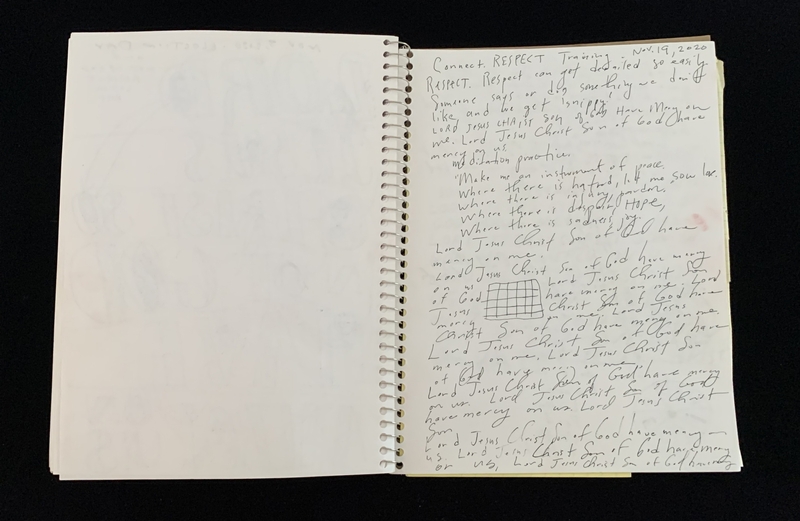 Connect. RESPECT Training Nov. 19, 2020
RESPECT. Respect can get derailed so easily
Someone says or does something we don't
like, and we get snippy.
LORD JESUS CHRIST Son of God Have Mercy on
me. Lord Jesus Christ Son of God have
mercy on us.
meditation practice.
"Make me an instrument of peace.
Where there is hatred, let me sow love.
Where there is injury pardon."
Where there is despair, Hope,
Where there is sadness joy.
Lord Jesus Christ Son of God have
mercy on me.
Lord Jesus Christ Son of God have mercy
on us Lord Jesus Christ Son
of God have mercy on me. Lord
Jesus Christ Son of God have
mercy on me. Lord Jesus
Christ Son of God have mercy on me.
Lord Jesus Christ Son of God have
mercy on me. Lord Jesus Christ Son
of God have mercy on me
Lord Jesus Christ Son of God have mercy
on us Lord Jesus Christ Son of God
have mercy on us. Lord Jesus Christ
Son
Lord Jesus Christ Son of God have mercy on
us Lord Jesus Christ Son of God have mercy
on us, Lord Jesus Christ Son of God have mercy